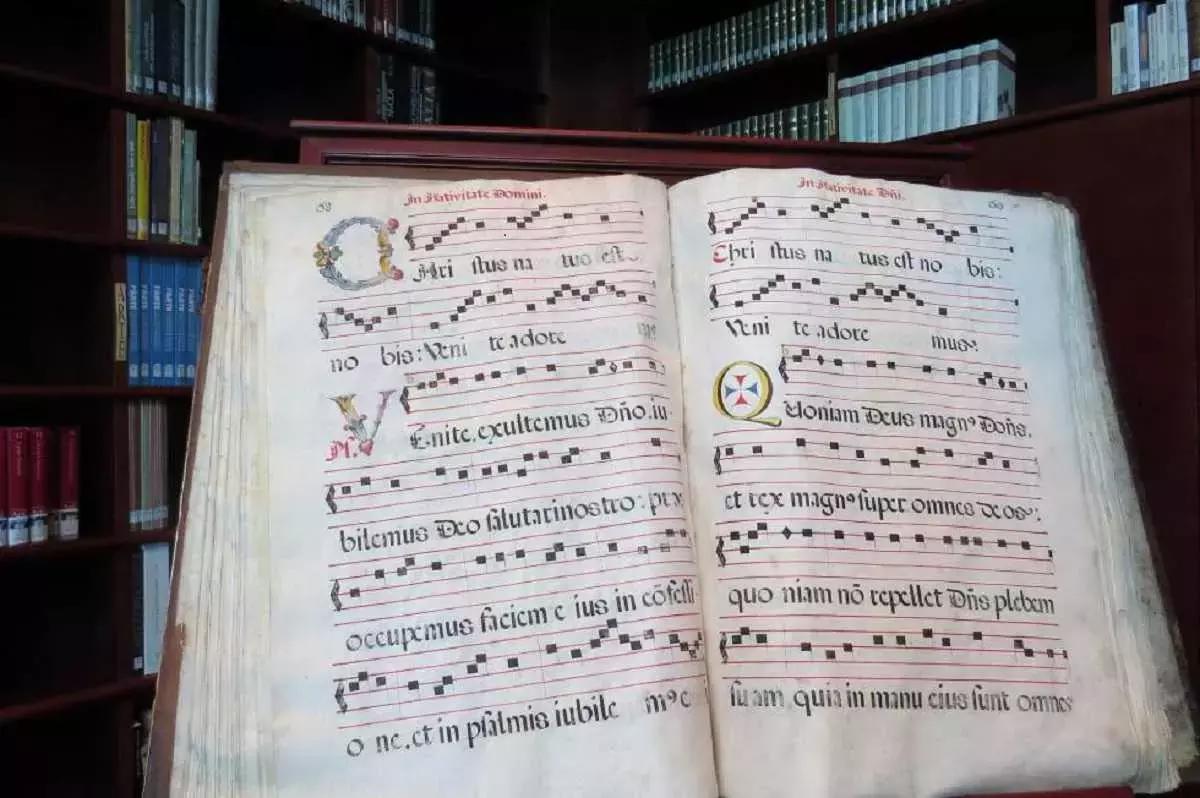 In Nativitate Domini.
CHri ſtus na tus eſt
no bis: Veni te adore
VEnite. exultemus Dño. iu
bilemus Deo ſalutari noſtro: præ
occupemus faciem e ius in cõfeſſi
o ne. et in pſalmis iubile mꝰ e
In Nativitate Dñi.
Chri ſtus na tus eſt no bis:
Veni te adore mus:
QUoniam Deus magnꝰ Doñs.
et rex magnꝰ ſuper omnes deos:
quo niam nõ repellet Dñs plebem
ſu am, quia in manu eius ſunt omnes